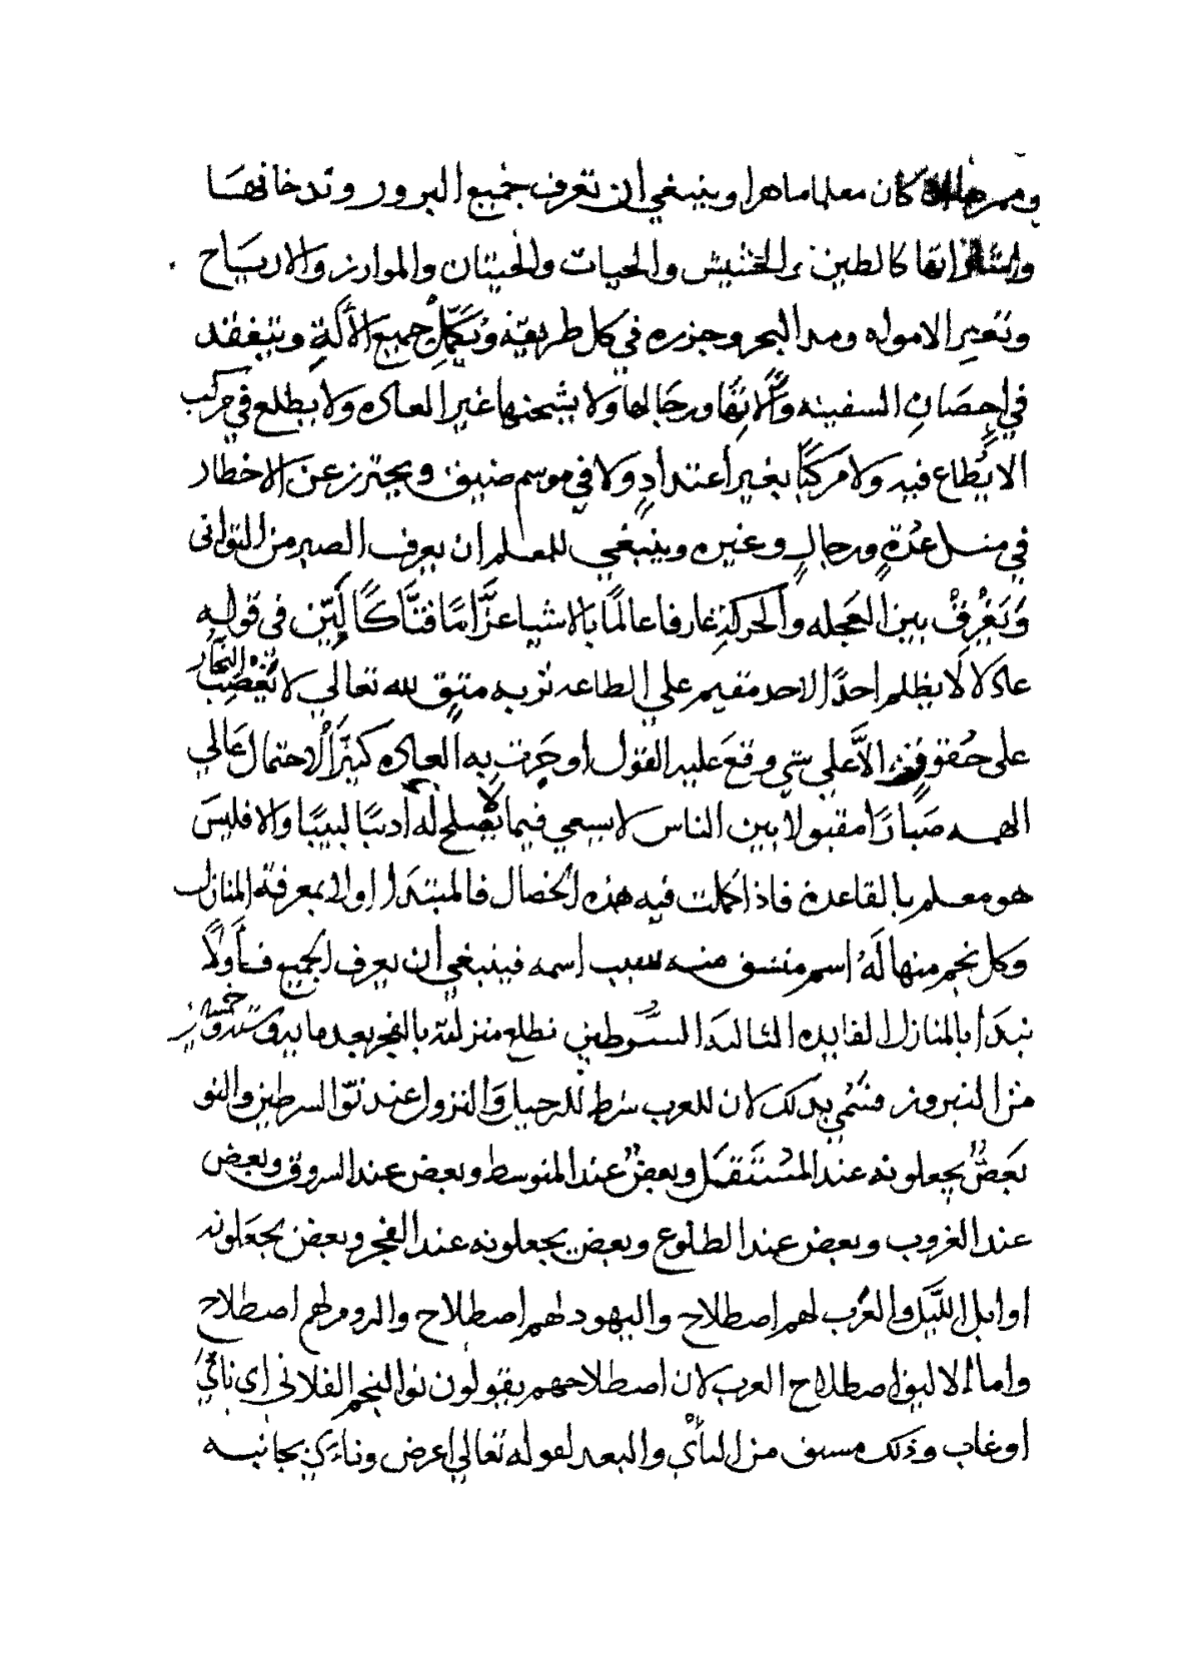 كان معلما ماهرا وينبغي ان تعرف جميع البرور وندخاتها
واشاراتها كالطين والحشيش والحيات والحيتان والموارز والارياح
وتغير الامواه ومد البحر وجزره في كل طريقة وتكمل جميع الألة وتتفقد
في احصان السفينه وآلاتها ورجالها ولا يشحنها غير العاده ولا يطلع في مركب
الا يطاع فيه ولا مركبا بغير اعتداد ولا في موسم ضيق ويحترز عن الاخطار
في مثل عدة ورجال وغيره وينبغي للمعلم ان يعرف الصبر من التواني
ويعرف بين العجله والحركة عارفا عالما بالاشيا عزاما فتاكا لين في قوله
عادلا لا يظلم احدا لاحد مقيم على الطاعه لربه متق لله تعالى لا يغصب التجار
على حقوقهم الا على شي وقع عليه القول او جرت به العاده كثير الاحتمال عالي
الهمه صبارا مقبولا بين الناس لا يسعي فيما لا يصلح له اديبا لبيبا والا فليس
هو معلم بالقاعدة فاذا كملت فيه هذه الخصال فالمبتدا اولا بمعرفة المنازل
وكل نجم منها له اسم مشتق منه سبب اسمه فينبغي ان يعرف الجميع فأولا
نبدا بالمنازل الفايده الثالثة الشرطين تطلع منزلته بالفجر بعد مايه وخمسة وستين
من النيروز فسمي بذلك لان للعرب شرط للرحيل والنزول عند نوّ السرطين والنو
بعض يجعلونه عند المستقبل وبعض عند المتوسط وبعض عند الشروق وبعض
عند الغروب وبعض عند الطلوع وبعض يجعلونه عند الفجر وبعض يجعلونه
اوايل الليل والعرب لهم اصطلاح واليهود لهم اصطلاح والروم لهم اصطلاح
واما الاليق اصطلاح العرب لان اصطلاحهم يقولون نوا النجم الفلاني اي نائي
او غاب وذلك مشتق من النأي والبعد لقوله تعالى اعرض وناءي بجانبه